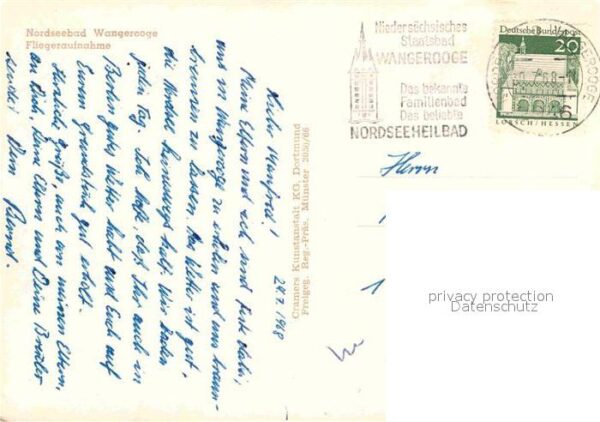 Nordseebad Wangerooge
Fliegeraufnahme
Niedersächsisches
Staatsbad
WANGEROOGE
Das bekannte
Familienbad
Das beliebte
NORDSEEHEILBAD
Deutsche Bundespost
20
LORSCH/HESSEN
Herrn
privacy protection
Datenschutz
Cramers Kunstanstalt KG, Dortmund
Freigeg. Reg.-Präs. Münster 2050/66
1968
Lieber Manfred!
Meine Eltern und ich sind
uns in Wangerooge zu erholen und uns braun-
brennen zu lassen. Das Wetter ist gut,
die Wirkung hält. Wir baden
jeden Tag. Ich hoffe, daß Ihr auch in
gutes Wetter habt und Euch auf
Eurem Grundstück gut erholt.
Herzliche Grüße, auch von meinen Eltern,
an Dich, Deine Eltern und Deine Brüder
sendet Dein Bernd.